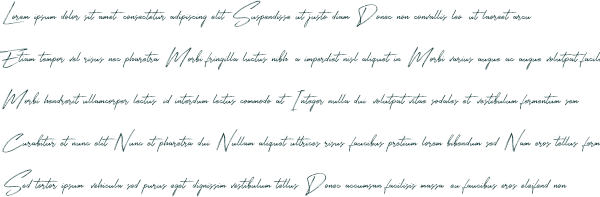 Lorem ipsum dolor sit amet consectetur adipiscing elit Suspendisse ut justo diam Donec non convallis leo ut laoreet arcu
Etiam tempor vel risus nec pharetra Morbi fringilla luctus nibh a imperdiet nisl aliquet in Morbi varius augue ac augue volutpat
Morbi hendrerit ullamcorper lectus id interdum lectus commodo at Integer nulla dui volutpat vitae sodales et vestibulum fermentum sem
Curabitur et nunc elit Nunc et pharetra dui Nullam aliquet ultrices risus faucibus pretium lorem bibendum sed Nam eros tellus
Sed tortor ipsum vehicula sed purus eget dignissim vestibulum tellus Donec accumsan facilisis massa eu faucibus eros eleifend non